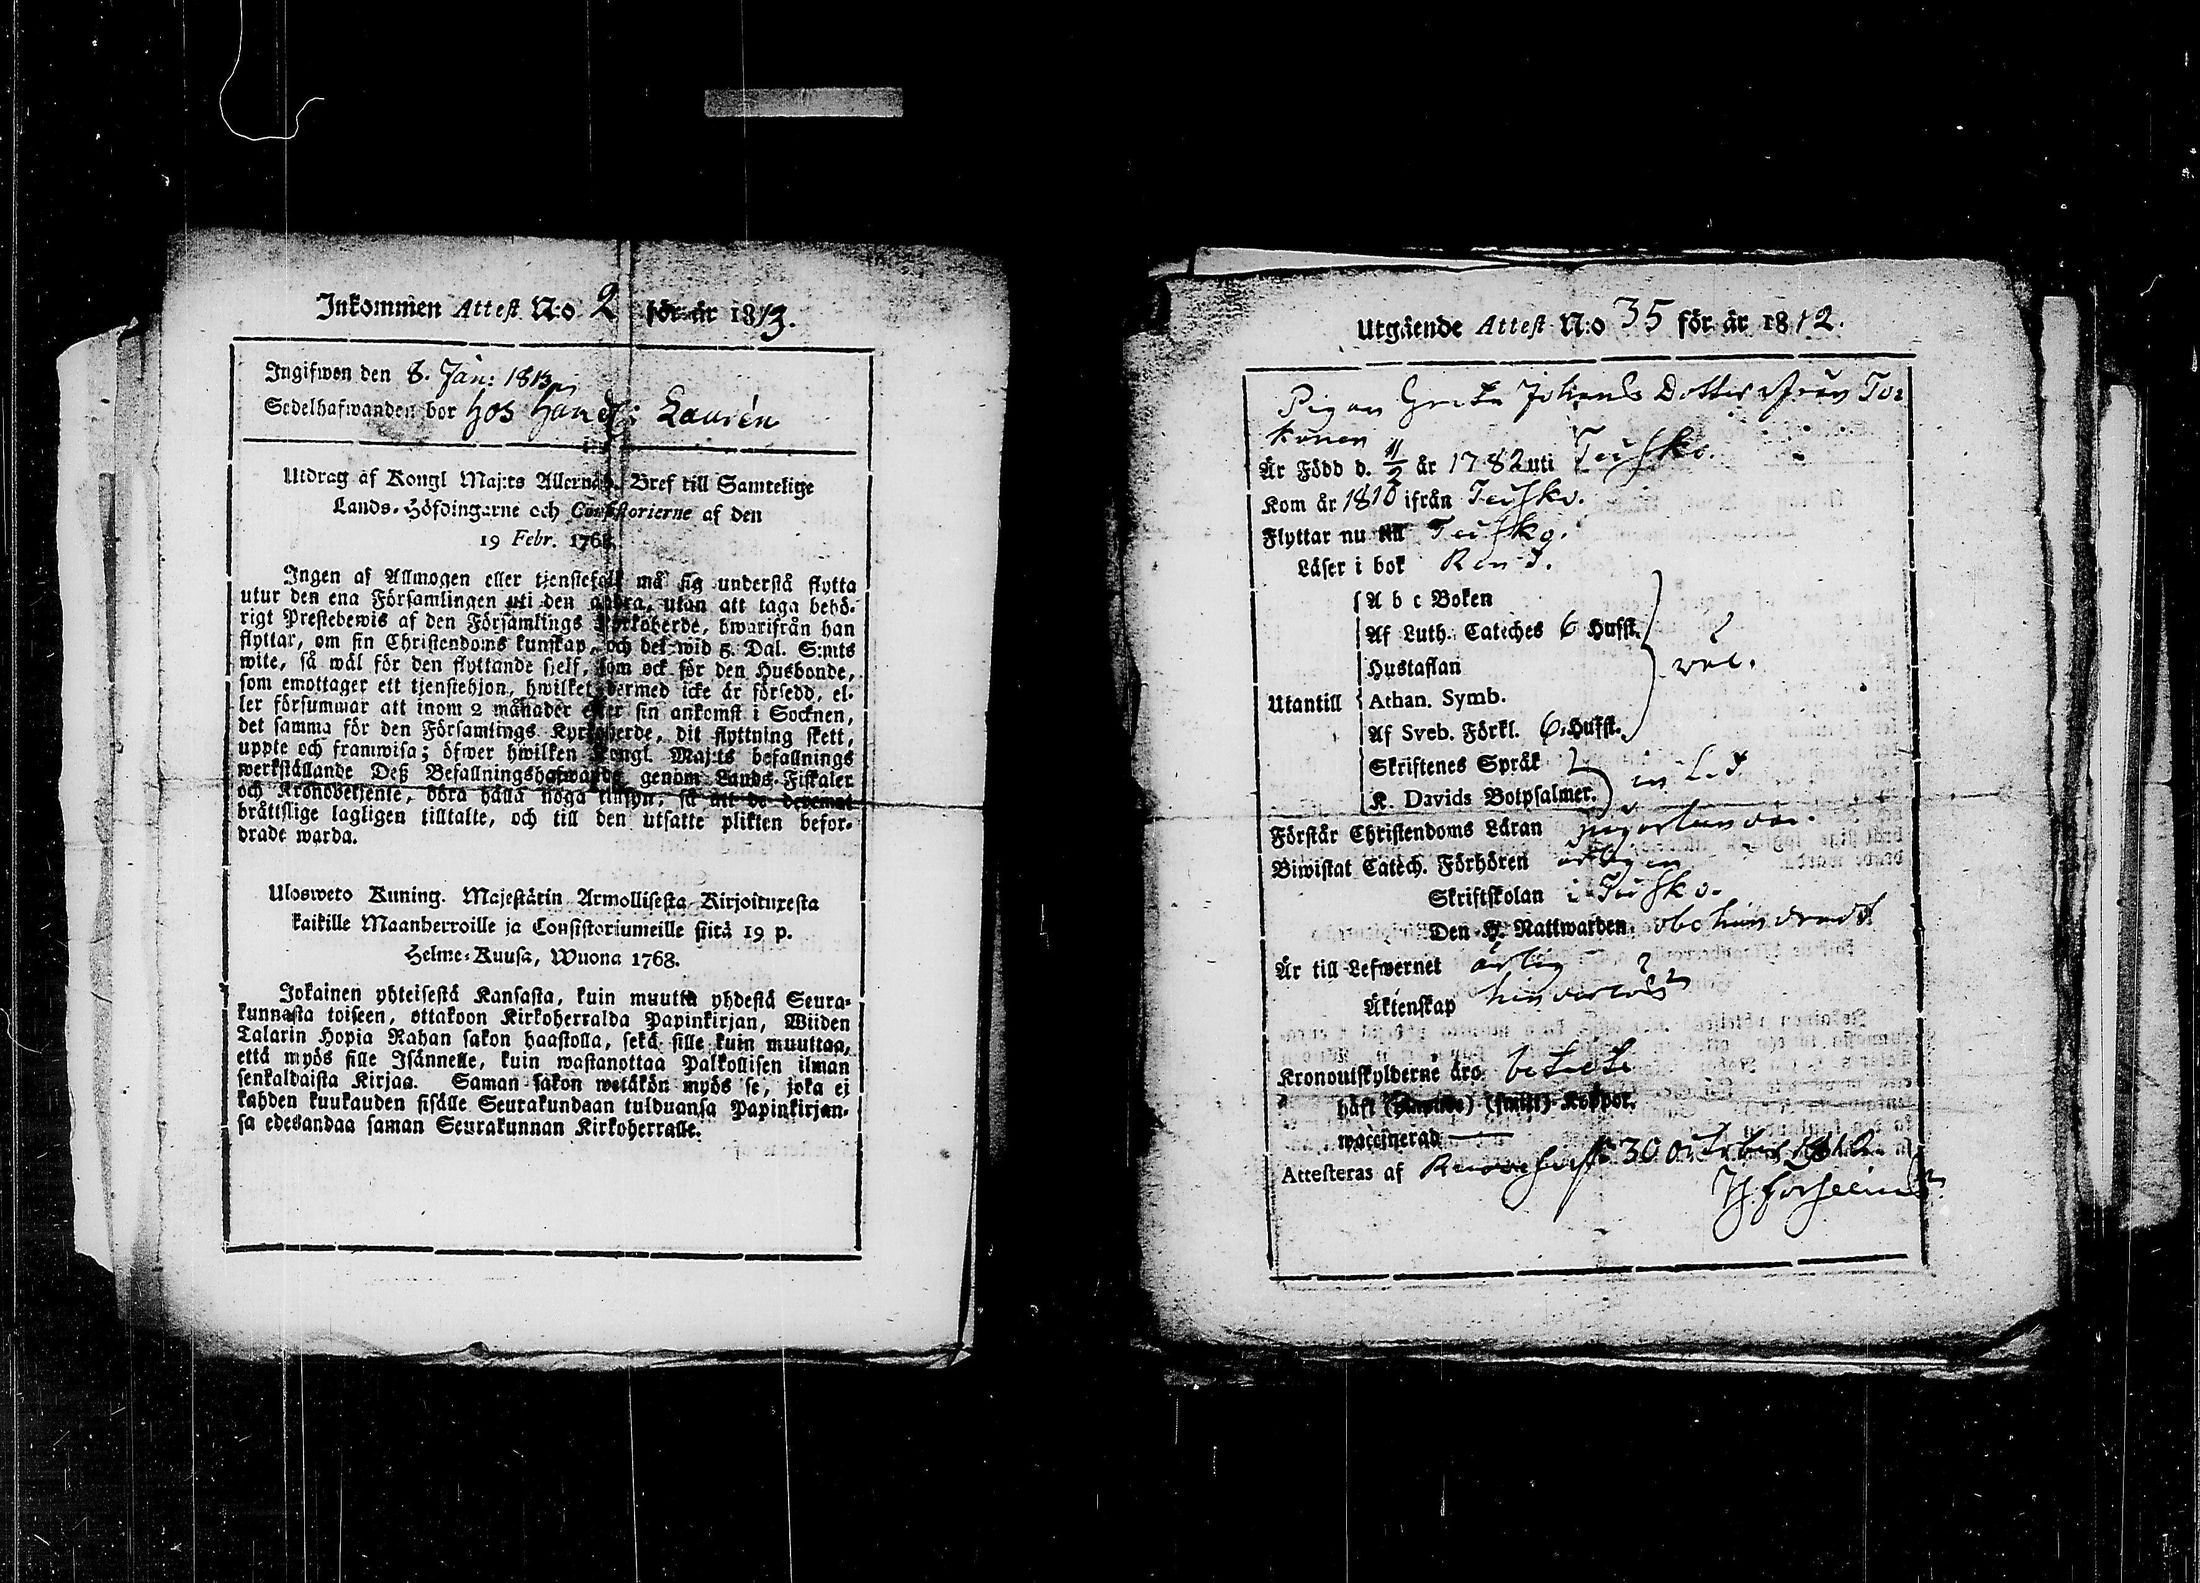 Inkommen Attest N:o 2 för år 1813.
Ingifwen den 8. Jan: 1813
Sedelhafwanden bor hos Handl: Laurén
Utdrag af Kongl Maj:ts Allernåd. Bref till Samtelige
Lands-Höfdingarne och Consistorierne af den
19 Febr. 1768.
Ingen af Allmogen eller tjenstefolk må sig understå flytta
utur den ena Församlingen uti den andra, utan att taga behö-
rigt Prestebewis af den Församlings Kyrkoherde, hwarifrån han
flyttar, om sin Christendoms kunskap, och det wid 5. Dal. S:mts
wite, så wäl för den flyttande sjelf, som ock för den Husbonde,
som emottager ett tjenstehjon, hwilket dermed icke är försedd, el-
ler försummar att inom 2 månader efter sin ankomst i Socknen,
det samma för den Församlings Kyrkoherde, dit flyttning skett,
uppte och framwisa; öfwer hwilken Kongl. Maj:ts befallnings
werkställande Deß Befallningshafwande genom Lands-Fiskaler
och Kronobetjente, böra hålla noga tillsyn, så att de deremot
bråttslige lagligen tilltalte, och till den utsatte plikten befor-
drade warda.
Ulosweto Kuning. Majestätin Armollisesta Kirjoituxesta
kaikille Maanherroille ja Consistoriumeille siitä 19 p.
Helme-Kuusa, Wuona 1768.
Jokainen yhteisestä Kansasta, kuin muutta yhdestä Seura-
kunnasta toiseen, ottakoon Kirkoherralda Papinkirjan, Wiiden
Talarin Hopia Rahan sakon haastolla, sekä sille kuin muuttaa,
että myös sille Isännelle, kuin wastanottaa Palkollisen ilman
senkaldaista Kirjaa. Saman sakon wetäkön myös se, joka ei
kahden kuukauden sisälle Seurakundaan tulduansa Papinkirjan-
sa edesandaa saman Seurakunnan Kirkoherralle.
Utgående Attest N:o 35 för år 1812.
Pigan Greta Johans Dotter ifrån Tor
konen
Är Född d. 11/2 år 1782 uti Tusko.
Kom år 1810 ifrån Tusko.
Flyttar nu till Tusko.
Läser i bok Rent.
A b c Boken
Af Luth. Cateches 6 Hufst.
Hustaflan wäl.
Utantill Athan. Symb.
Af Sveb. Förkl. 6. Hufst.
Skriftenes Språk
K. Davids Botpsalmer.
Förstår Christendoms Läran
Biwistat Catech. Förhören årligen
Skriftskolan i Tusko.
Den H. Nattwarden obehindradt
Är till Lefwernet ärlig
Äktenskap hinderlös
Kronoutskylderne äro betalte
haft Koppor.
waccinerad
Attesteras af 30 October 1812